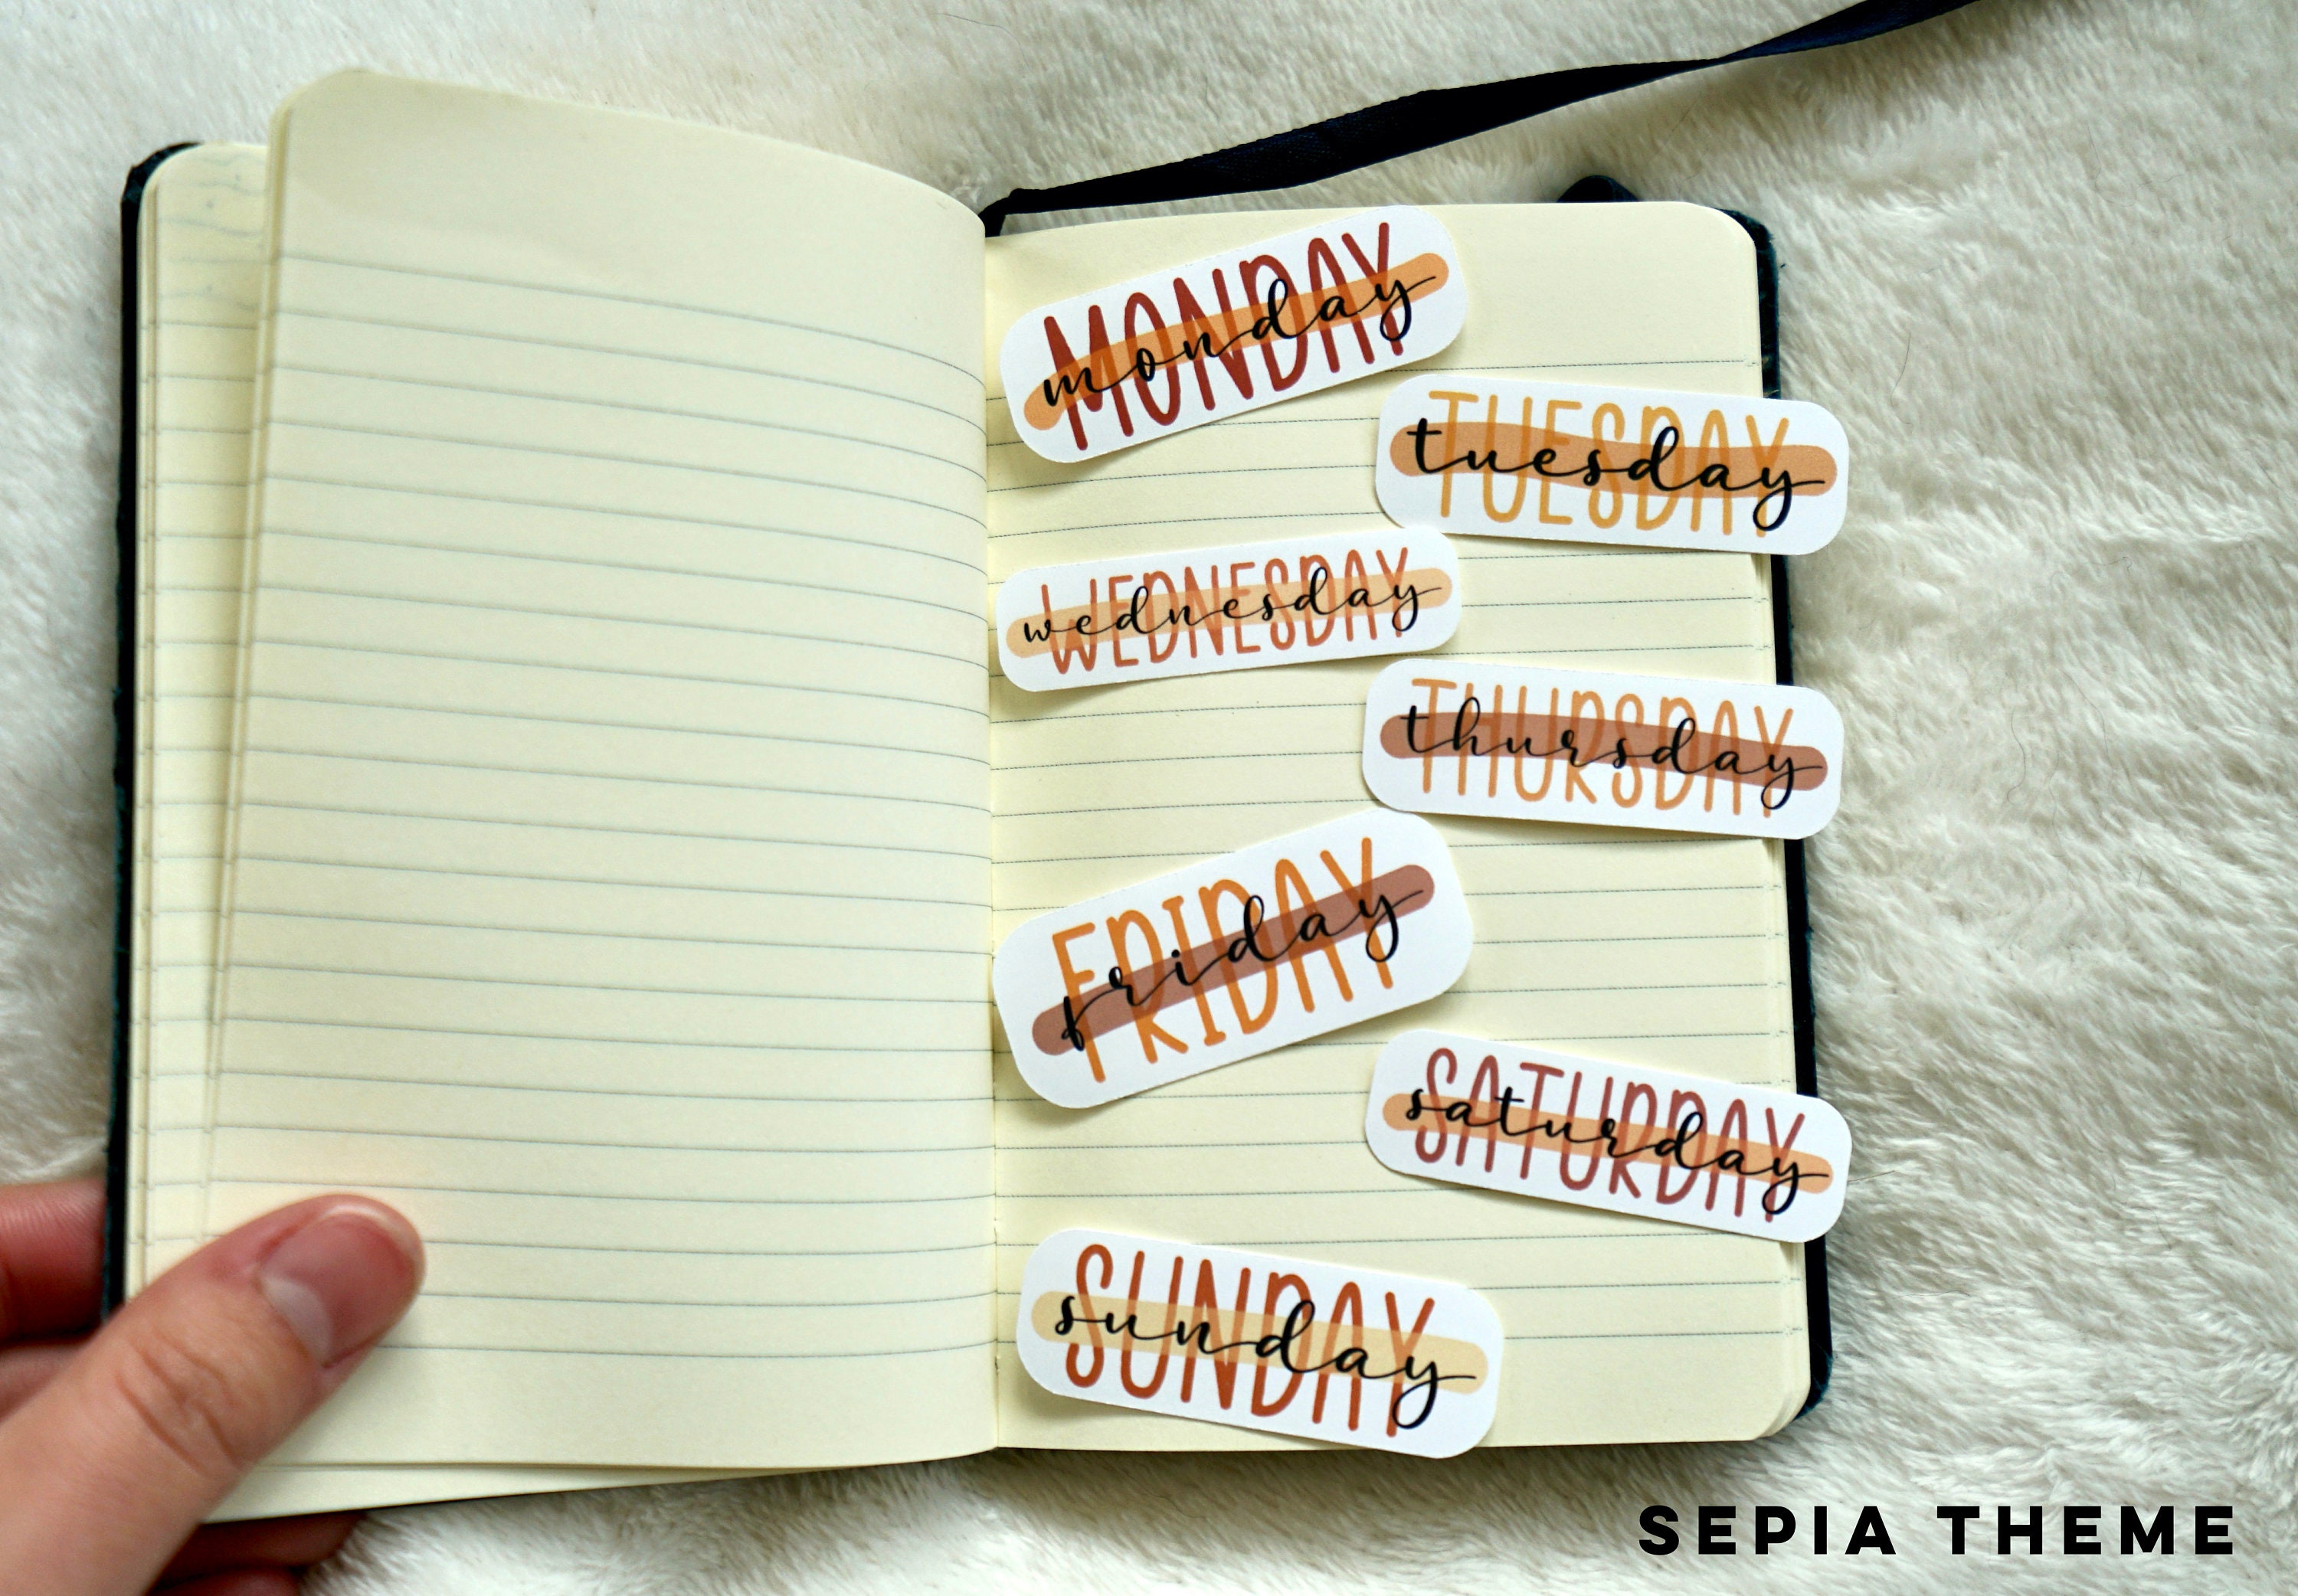 MONDAY
monday
TUESDAY
tuesday
WEDNESDAY
wednesday
THURSDAY
thursday
FRIDAY
friday
SATURDAY
saturday
SUNDAY
sunday
SEPIA THEME